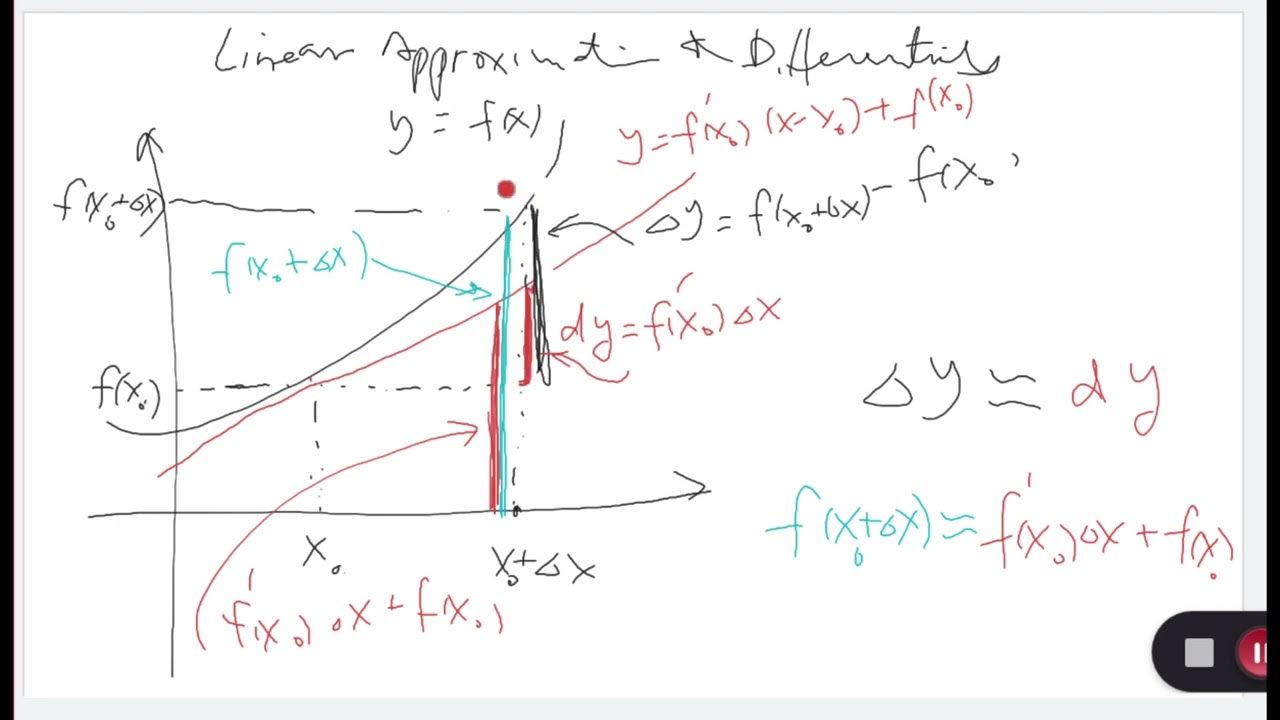 Linear Approximation & Differentials
y = f(x)
y = f'(x₀)(x-x₀) + f(x₀)
f(x₀+Δx)
Δy = f(x₀+Δx) - f(x₀)
f(x₀+Δx)
dy = f'(x₀)Δx
f(x₀)
Δy ≈ dy
f(x₀+Δx) ≈ f'(x₀)Δx + f(x₀)
x₀
x₀+Δx
f'(x₀)Δx + f(x₀)